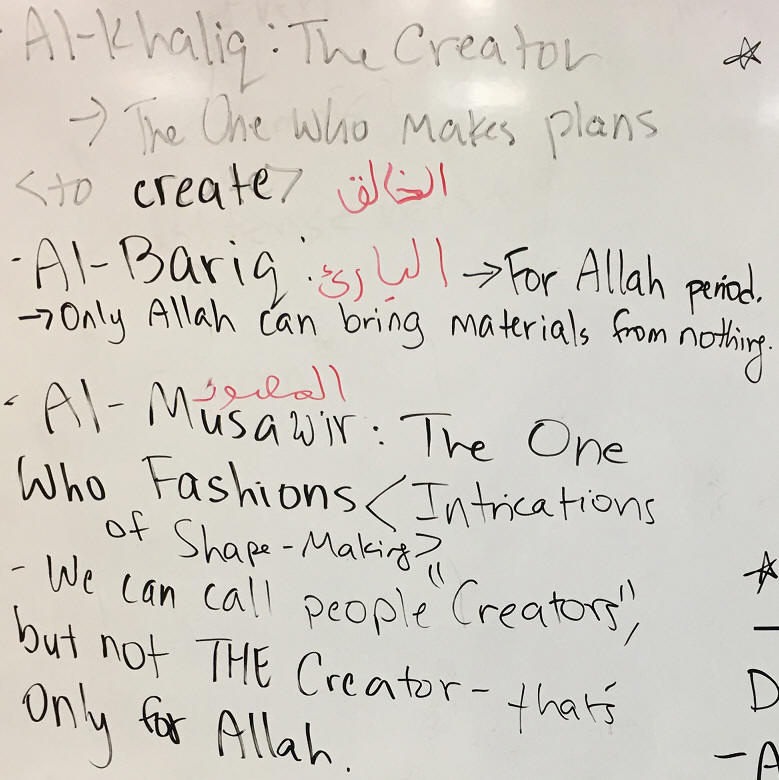 · Al-Khaliq: The Creator
→ The One Who Makes plans
<to create> الخالق
- Al-Bariq: البارئ → For Allah period.
→ Only Allah can bring materials from nothing.
المصور
- Al-Musawir: The One
Who Fashions <Intrications
of Shape-Making>
- We can call people "Creators",
but not THE Creator - that's
Only for Allah.
D
- A